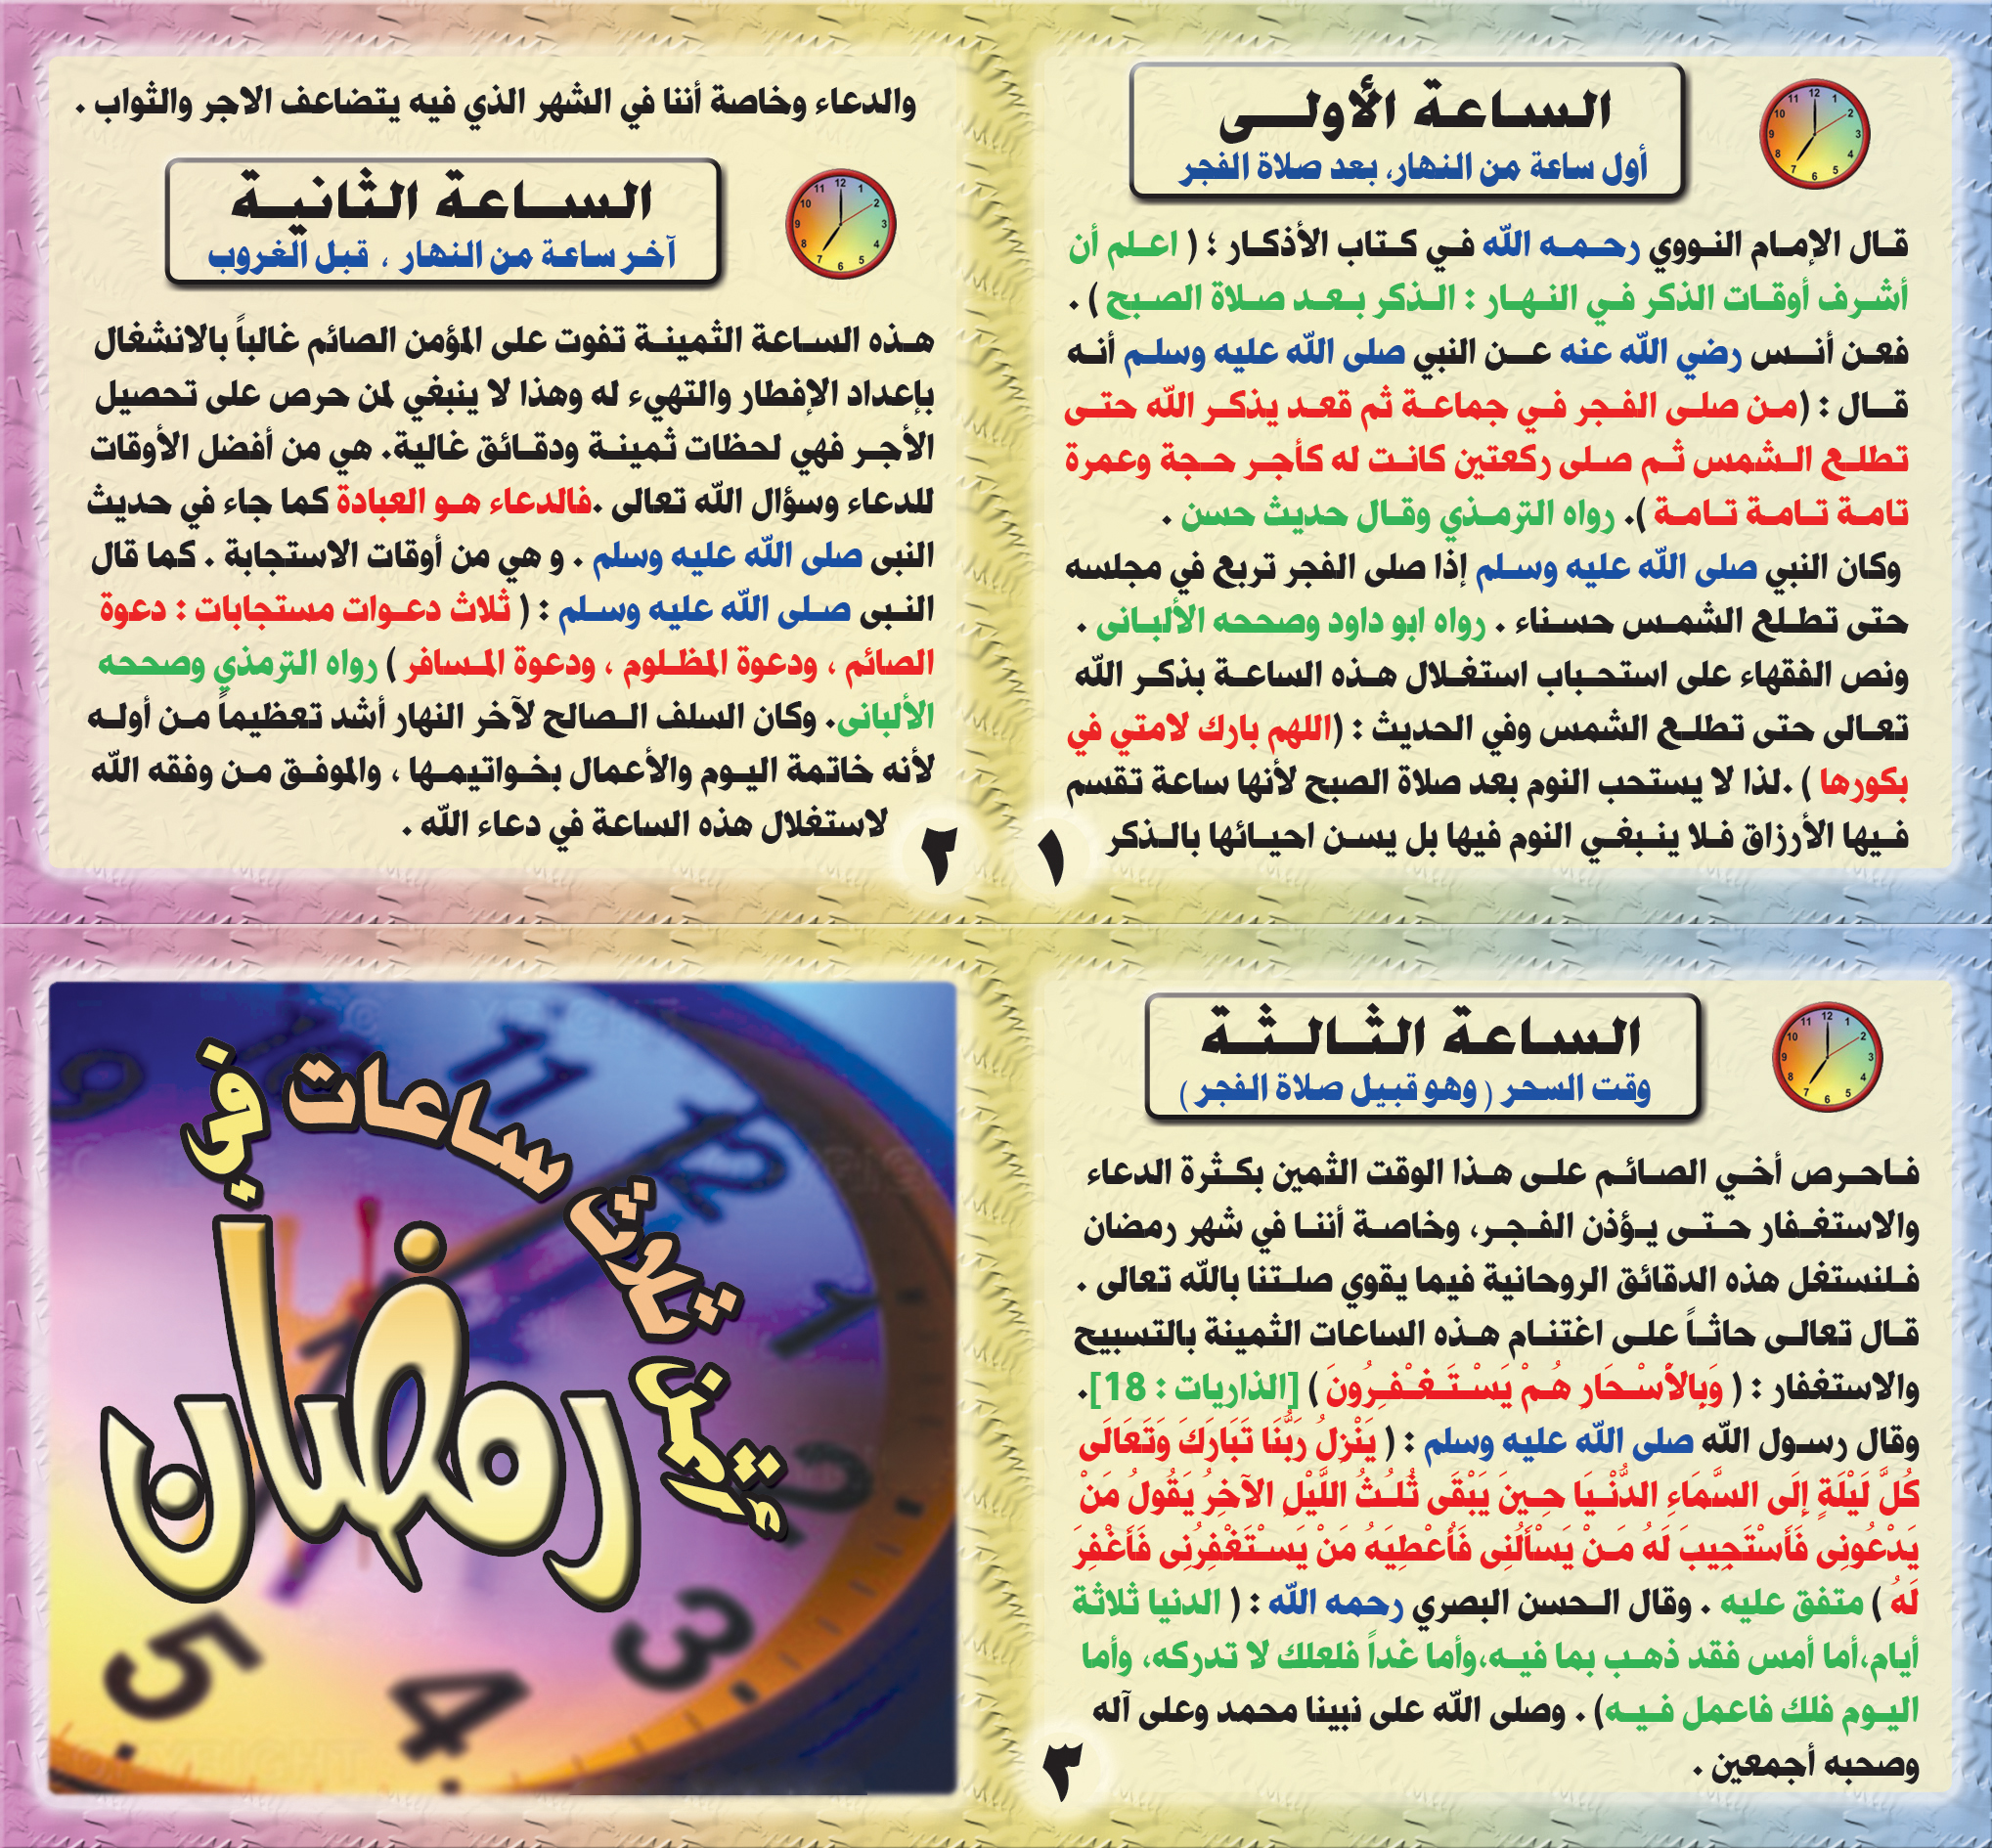 الساعة الأولى
أول ساعة من النهار، بعد صلاة الفجر
قال الإمام النووي رحمه الله في كتاب الأذكار ؛ ( اعلم أن
أشرف أوقات الذكر في النهار : الذكر بعد صلاة الصبح ) .
فعن أنس رضي الله عنه عن النبي صلى الله عليه وسلم أنه
قال : (من صلى الفجر في جماعة ثم قعد يذكر الله حتى
تطلع الشمس ثم صلى ركعتين كانت له كأجر حجة وعمرة
تامة تامة تامة ). رواه الترمذي وقال حديث حسن .
وكان النبي صلى الله عليه وسلم إذا صلى الفجر تربع في مجلسه
حتى تطلع الشمس حسناء . رواه ابو داود وصححه الألبانى .
ونص الفقهاء على استحباب استغلال هذه الساعة بذكر الله
تعالى حتى تطلع الشمس وفي الحديث : (اللهم بارك لامتي في
بكورها ) .لذا لا يستحب النوم بعد صلاة الصبح لأنها ساعة تقسم
فيها الأرزاق فلا ينبغي النوم فيها بل يسن احيائها بالذكر
١
والدعاء وخاصة أننا في الشهر الذي فيه يتضاعف الاجر والثواب .
الساعة الثانية
آخر ساعة من النهار ، قبل الغروب
هذه الساعة الثمينة تفوت على المؤمن الصائم غالباً بالانشغال
بإعداد الإفطار والتهيء له وهذا لا ينبغي لمن حرص على تحصيل
الأجر فهي لحظات ثمينة ودقائق غالية. هي من أفضل الأوقات
للدعاء وسؤال الله تعالى .فالدعاء هو العبادة كما جاء في حديث
النبى صلى الله عليه وسلم . و هي من أوقات الاستجابة . كما قال
النبى صلى الله عليه وسلم : ( ثلاث دعوات مستجابات : دعوة
الصائم ، ودعوة المظلوم ، ودعوة المسافر ) رواه الترمذي وصححه
الألبانى. وكان السلف الصالح لآخر النهار أشد تعظيماً من أوله
لأنه خاتمة اليوم والأعمال بخواتيمها ، والموفق من وفقه الله
لاستغلال هذه الساعة في دعاء الله .
٢
الساعة الثالثة
وقت السحر ( وهو قبيل صلاة الفجر )
فاحرص أخي الصائم على هذا الوقت الثمين بكثرة الدعاء
والاستغفار حتى يؤذن الفجر، وخاصة أننا في شهر رمضان
فلنستغل هذه الدقائق الروحانية فيما يقوي صلتنا بالله تعالى .
قال تعالى حاثاً على اغتنام هذه الساعات الثمينة بالتسبيح
والاستغفار : ( وَبِالأَسْحَارِ هُمْ يَسْتَغْفِرُونَ ) [الذاريات : 18].
وقال رسول الله صلى الله عليه وسلم : ( يَنْزِلُ رَبُّنَا تَبَارَكَ وَتَعَالَى
كُلَّ لَيْلَةٍ إِلَى السَّمَاءِ الدُّنْيَا حِينَ يَبْقَى ثُلُثُ اللَّيْلِ الآخِرُ يَقُولُ مَنْ
يَدْعُونِى فَأَسْتَجِيبَ لَهُ مَنْ يَسْأَلُنِى فَأُعْطِيَهُ مَنْ يَسْتَغْفِرُنِى فَأَغْفِرَ
لَهُ ) متفق عليه . وقال الحسن البصري رحمه الله : ( الدنيا ثلاثة
أيام،أما أمس فقد ذهب بما فيه،وأما غداً فلعلك لا تدركه، وأما
اليوم فلك فاعمل فيه) . وصلى الله على نبينا محمد وعلى آله
وصحبه أجمعين .
٣
أثمن ثلاث ساعات في
رمضان